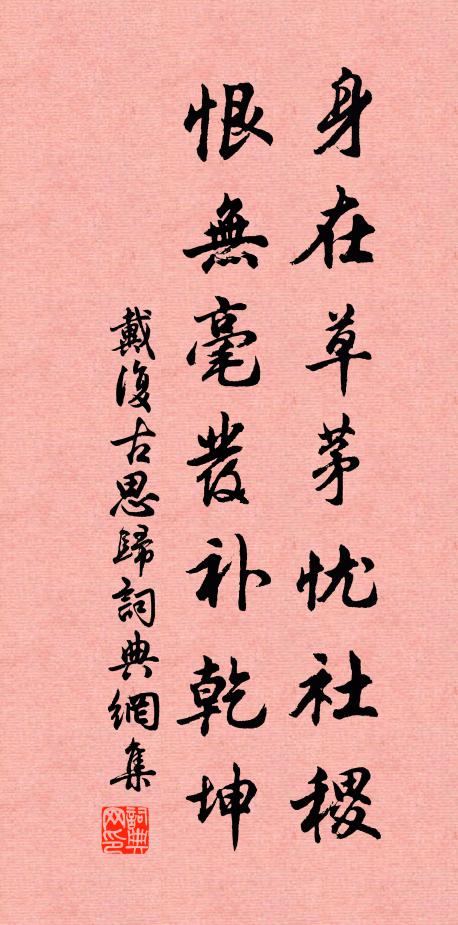 身在草茅忧社稷
恨無毫發补乾坤
戴復古思歸詞典網集
詞典网印